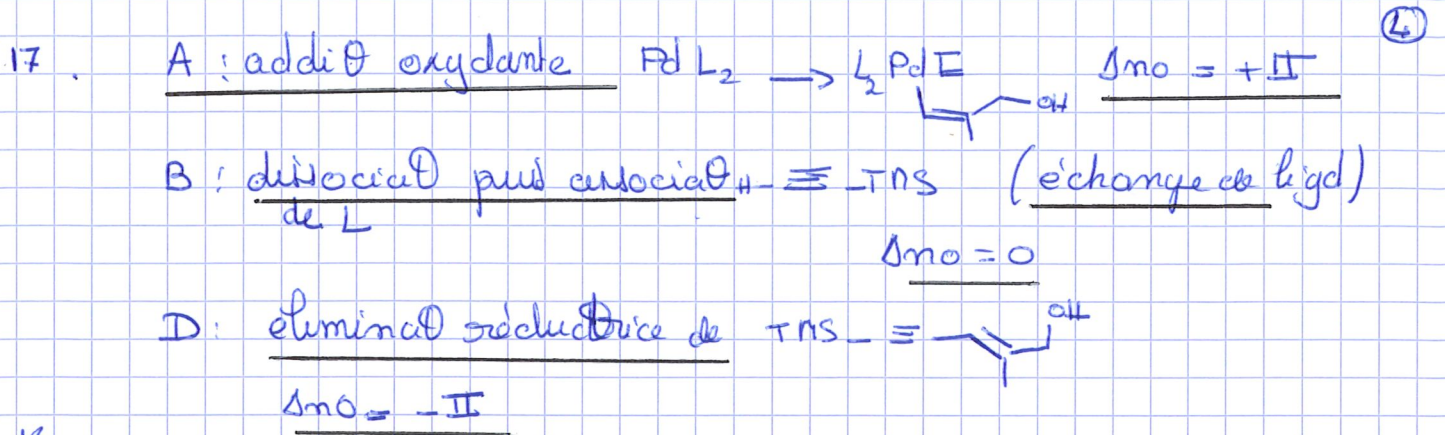 4
17. A : additθ oxydante PdL2 → L2PdI Δno = +II
OH
B : dissociatθ puis associatθ H-≡-TMS (échange de ligd)
de L
Δno = 0
OH
D : éliminatθ réductrice de TMS-≡
Δno = -II